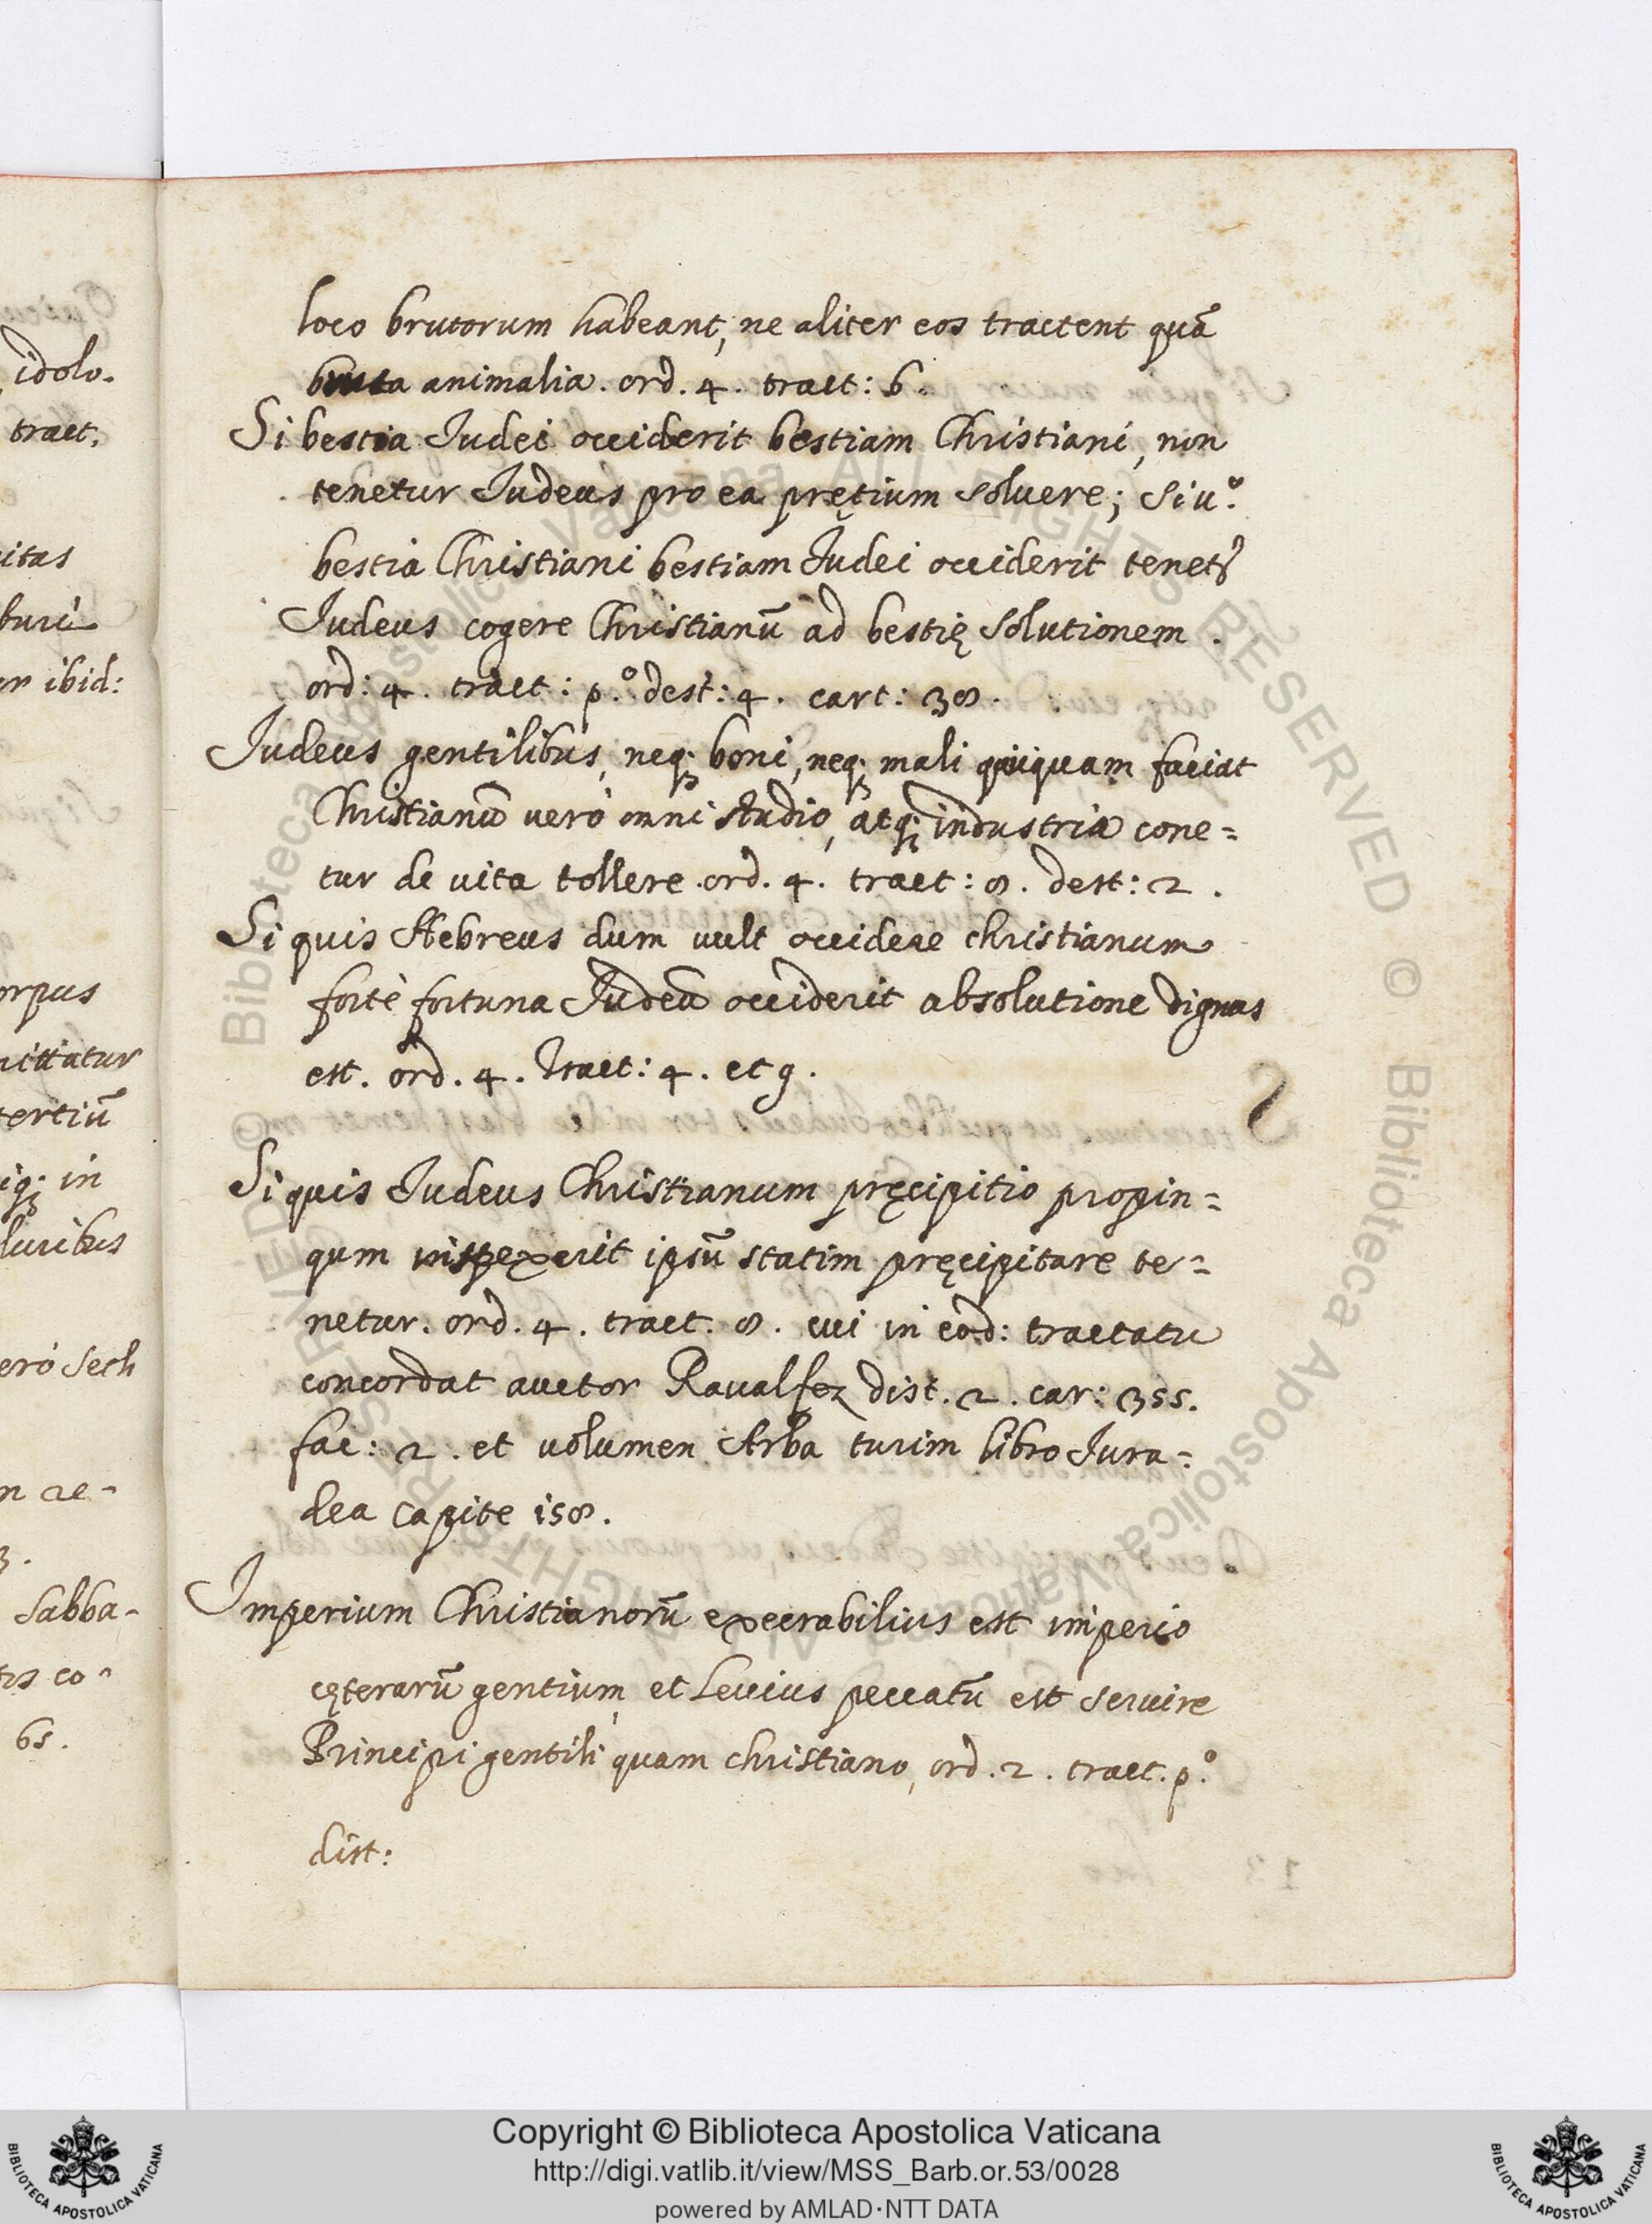 idolo.
tract,
itas
ibid:
orpus
tertiũ
in
Sech
3.
Sabba-
co-
65.
loco brutorum habeant, ne aliter eos tractent quã
bruta animalia. ord. 4. tract: 6.
Si bestia Judei occiderit bestiam Christiani, non
tenetur Judeus pro ea pretium soluere; Si u.º
bestia Christiani bestiam Judei occiderit tenet
Judeus cogere Christianũ ad bestię solutionem.
ord: 4. tract: p.º dest: 4. cart: 38.
Judeus gentilibus, neq; boni, neq; mali quiquam faciat
Christianũ uerò omni studio, atq; industria cone=
tur de uita tollere. ord. 4. tract: 8. dest: 2.
Si quis Hebreus dum uult occidere christianum
fortè fortuna Judeũ occiderit absolutione dignus
est. ord. 4. Tract: 4. et 9.
Si quis Judeus Christianum pręcipitio propin=
qum inspexerit ipsũ statim pręcipitare te=
netur. ord. 4. tract. 8. cui in eod: tractatu
concordat auctor Raualfez dist. 2. car: 355.
fac: 2. et uolumen Arba turim libro Jura=
dea capite 158.
Imperium Christianorũ execrabilius est imperio
cęterarũ gentium, et Leuius peccatũ est seruire
Principi gentili quam christiano, ord. 2. tract. p.º
dist:
© Biblioteca Apostolica Vaticana ALL RIGHTS RESERVED © Biblioteca Apostolica Vaticana ALL RIGHTS RESERVED
Copyright © Biblioteca Apostolica Vaticana
http://digi.vatlib.it/view/MSS_Barb.or.53/0028
powered by AMLAD·NTT DATA
BIBLIOTECA APOSTOLICA VATICANA
BIBLIOTECA APOSTOLICA VATICANA